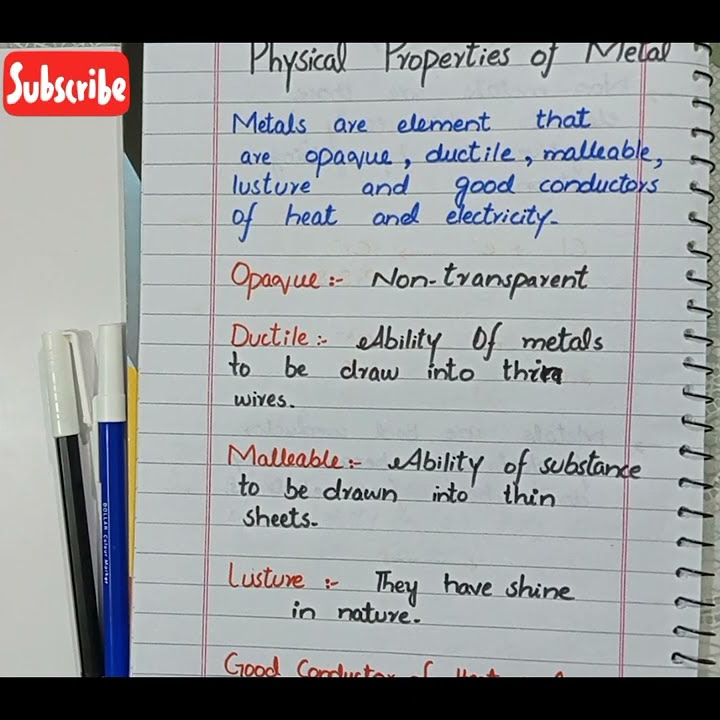 Subscribe
Physical Properties of Metal
Metals are element that
are opaque, ductile, malleable,
lusture and good conductors
of heat and electricity.
Opaque :- Non-transparent
Ductile :- Ability Of metals
to be draw into thin
wires.
Malleable :- Ability of substance
to be drawn into thin
sheets.
Lusture :- They have shine
in nature.
Good Conductor of Heat
DOLLAR Colour Marker